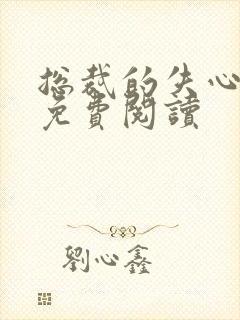 総裁的失心
免費閱讀
劉心鑫